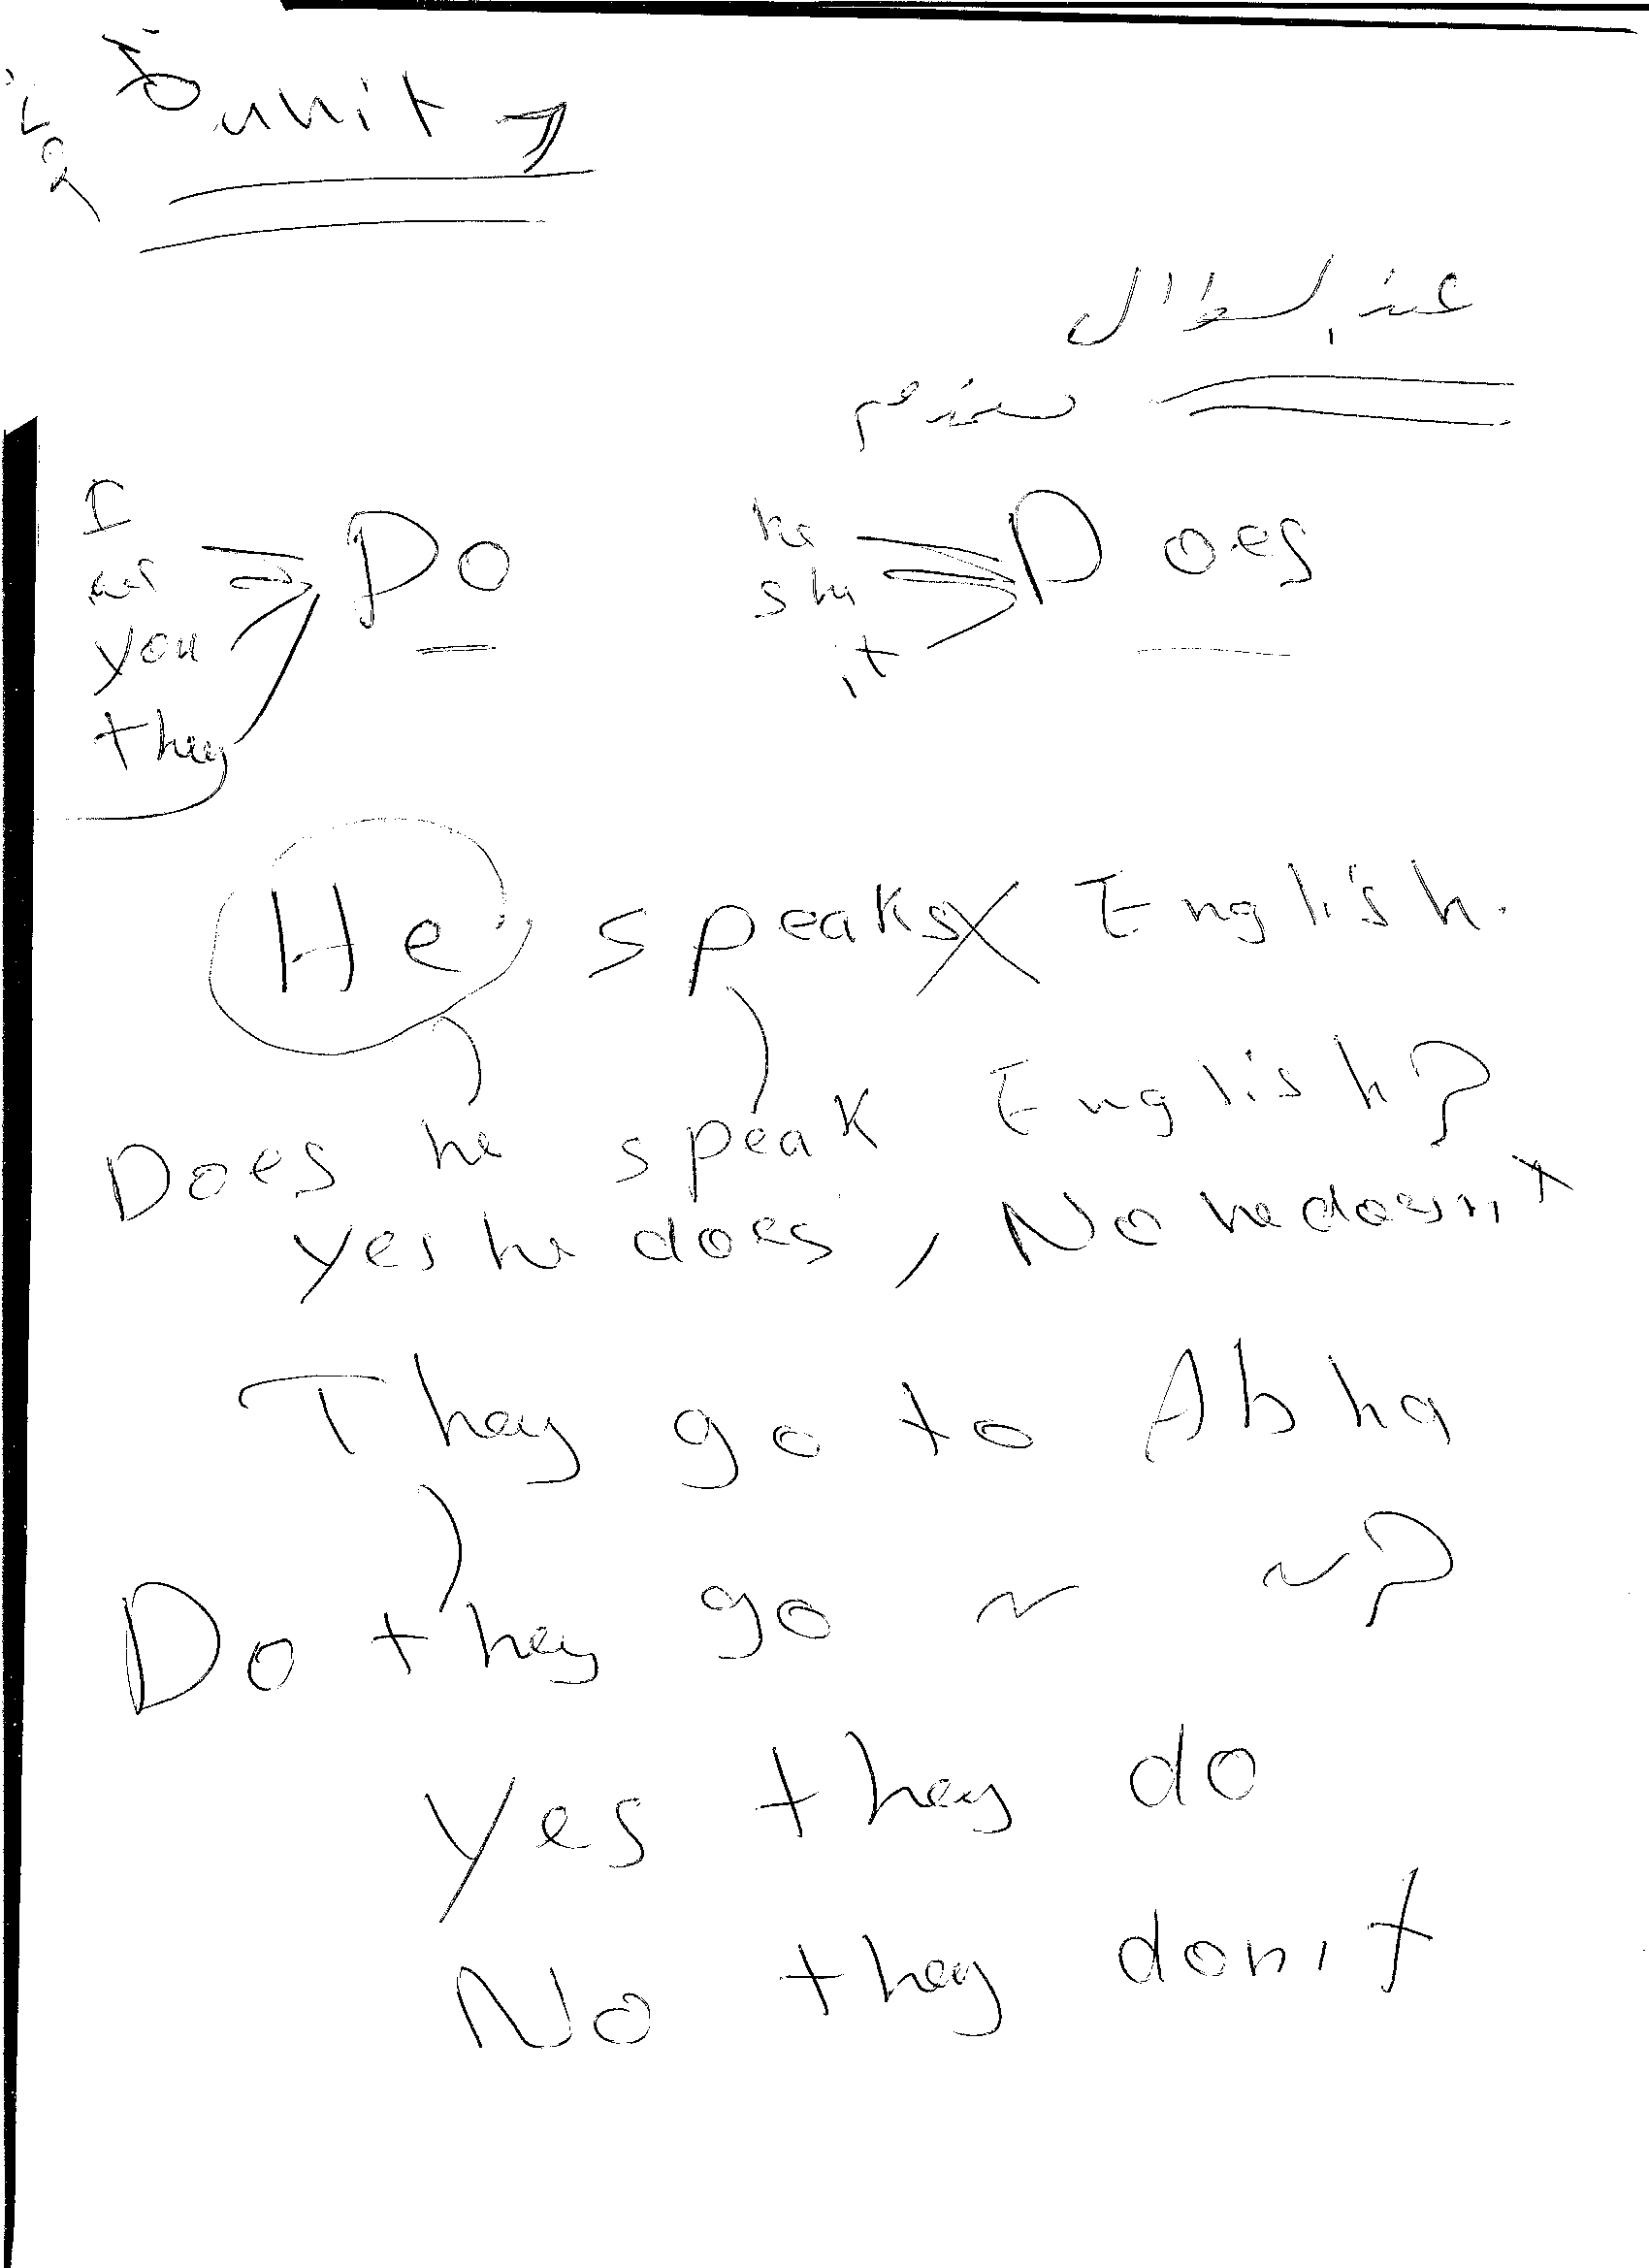 unit
عند السؤال
نستخدم
I
we
you
they
Do
he
she
it
Does
He speaks English.
Does he speak English?
yes he does, No he doesn't
They go to Abha
Do they go ~ ~?
Yes they do
No they don't